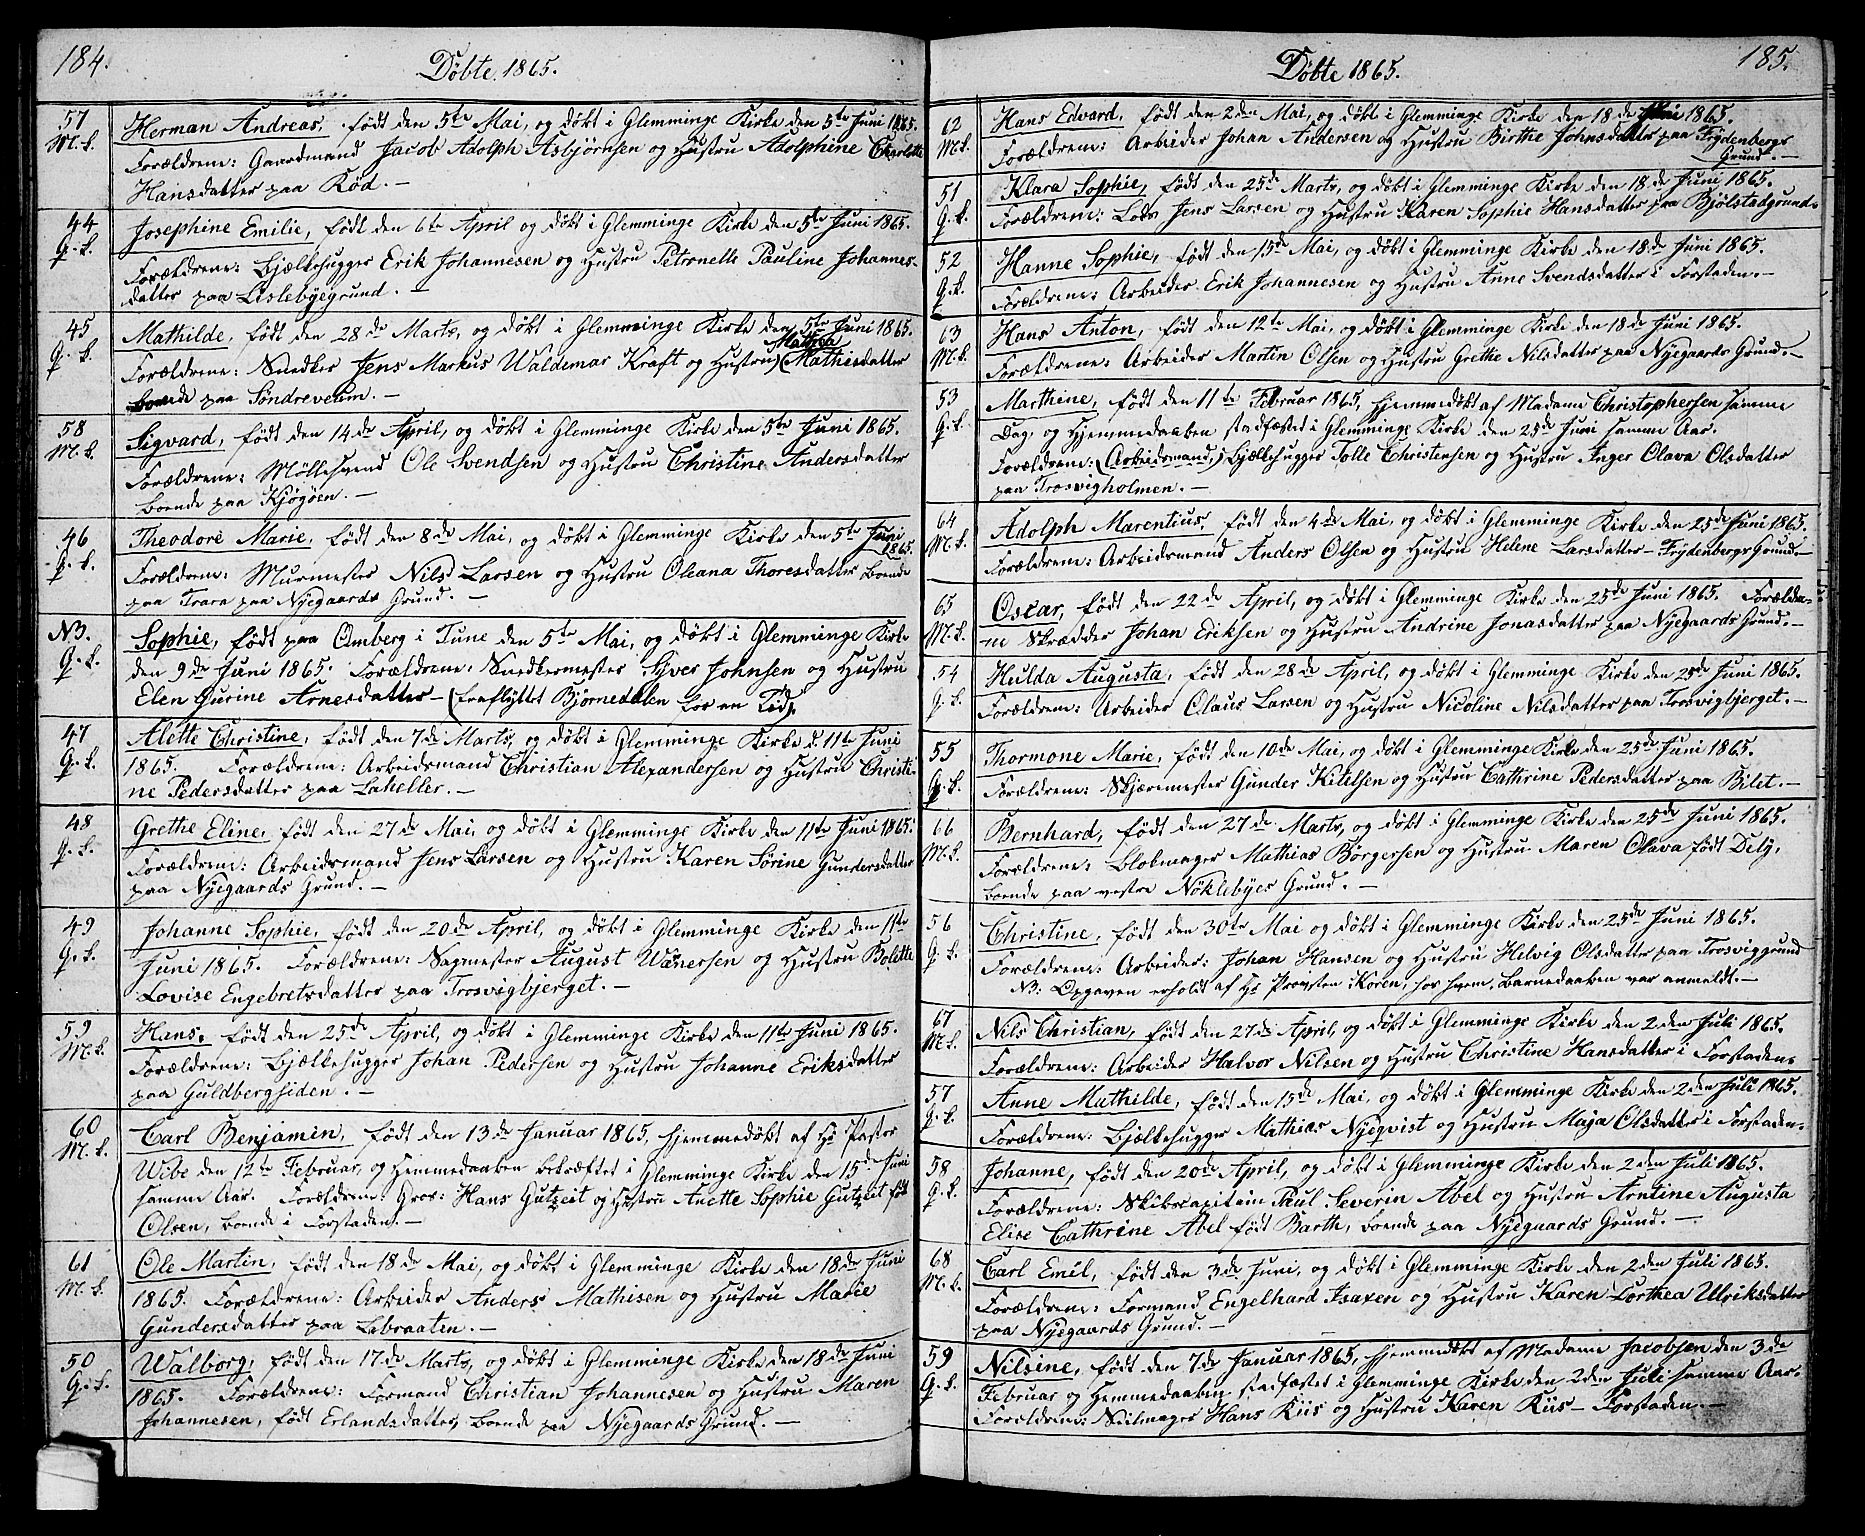 184.
Döbte 1865.
57 M. k.
Herman Andreas, født den 5te Mai, og døbt i Glemminge Kirke den 5te Juni 1865.
Forældrene: Gaardmand Jacob Adolph Asbjørnsen og Hustru Adolphine Charlotte
Hansdatter paa Kød. —
44 q. k.
Josephine Emilie, født den 6te April og døbt i Glemminge Kirke den 5te Juni 1865.
Forældrene: Bjælkehugger Erik Johannesen og Hustru Petronelle Pauline Johannes-
datter paa Lislebyegrund. —
45 q. k.
Mathilde, født den 28de Marts, og døbt i Glemminge Kirke den 5te Juni 1865.
Mathea
Forældrene: Snedker Jens Markus Waldemar Kraft og Hustru Mathisdatter
boende paa Søndreveum. —
58 M. k.
Sigvard, født den 14de April, og døbt i Glemminge Kirke den 5te Juni 1865.
Forældrene: Møllesvend Ole Svendsen og Hustru Christine Andersdatter
boende paa Kjøgøen. —
46 q. k.
Theodore Marie, født den 8de Mai, og døbt i Glemminge Kirke den 5te Juni
1865.
Forældrene: Murmester Nils Larsen og Hustru Oleana Thoresdatter boende
paa Trara paa Nyegaards Grund. —
NB. q. k.
Sophie, født paa Omberg i Tune den 5te Mai, og døbt i Glemminge Kirke
den 9de Juni 1865. Forældrene: Snedkermester Syver Johnsen og Hustru
Elen Gurine Arnesdatter — (fraflyttet Bjørnedalen for en Tid).
47 q. k.
Alette Christine, født den 7de Marts, og døbt i Glemminge Kirke d. 11te Juni
1865. Forældrene: Arbeidsmand Christian Alexandersen og Hustru Christi-
ne Pedersdatter paa Lakeller. —
48 q. k.
Grethe Eline, født den 27de Mai, og døbt i Glemminge Kirke den 11te Juni 1865.
Forældrene: Arbeidsmand Jens Larsen og Hustru Karen Sørine Gundersdatter
paa Nyegaards Grund. —
49 q. k.
Johanne Sophie, født den 20de April, og døbt i Glemminge Kirke den 11te
Juni 1865. Forældrene: Sagmester August Wanersen og Hustru Bolette
Lovise Engebretsdatter paa Trosvigbjerget. —
59 M. k.
Hans, født den 25de April, og døbt i Glemminge Kirke den 11te Juni 1865.
Forældrene: Bjælkehugger Johan Pedersen og Hustru Johanne Eriksdatter
paa Guldbergsiden. —
60 M. k.
Carl Benjamin, født den 13de Januar 1865, hjemmedøbt af Hr Pastor
Wibe den 12te Februar, og Hjemmedaaben bekræftet i Glemminge Kirke den 15de Juni
samme Aar. Forældrene: Gros: Hans Gutzeit og Hustru Anette Sophie Gutzeit født
Olsen, boende i Forstaden. —
61 M. k.
Ole Martin, født den 18de Mai, og døbt i Glemminge Kirke den 18de Juni
1865. Forældrene: Arbeider Anders Mathisen og Hustru Marie
Gundersdatter paa Labraaten. —
50 q. k.
Walborg, født den 17de Marts, og døbt i Glemminge Kirke den 18de Juni
1865. Forældrene: Formand Christian Johannesen og Hustru Maren
Johannesen, født Erlandsdatter, boende paa Nyegaards Grund. —
185.
Døbte 1865.
62 M. k.
Hans Edvard, født den 2den Mai, og døbt i Glemminge Kirke den 18de Juni 1865.
Forældrene: Arbeider Johan Andersen og Hustru Birthe Johnsdatter paa Frydenbergs
Grund. —
51 q. k.
Klara Sophie, født den 25de Marts, og døbt i Glemminge Kirke den 18de Juni 1865.
Forældrene: Lods Jens Larsen og Hustru Karen Sophie Hansdatter paa Bjølstadgrund.
52 q. k.
Hanne Sophie, født den 15de Mai, og døbt i Glemminge Kirke den 18de Juni 1865.
Forældrene: Arbeider Erik Johannesen og Hustru Anne Svendsdatter i Forstaden. —
63 M. k.
Hans Anton, født den 12te Mai, og døbt i Glemminge Kirke den 18de Juni 1865.
Forældrene: Arbeider Martin Olsen og Hustru Grethe Nilsdatter paa Nyegaards Grund. —
53 q. k.
Marthine, født den 11te Februar 1865, hjemmedøbt af Madame Christophersen samme
Dag, og Hjemmedaaben stadfæstet i Glemminge Kirke den 25de Juni samme Aar.
Forældrene: (Arbeidsmand.) Bjælkehugger Tolle Christensen og Hustru Inger Olava Olsdatter
paa Trosvigholmen. —
64 M. k.
Adolph Marentius, født den 4de Mai, og døbt i Glemminge Kirke den 25de Juni 1865.
Forældrene: Arbeidsmand Anders Olsen og Hustru Helene Larsdatter — Frydenbergs Grund. —
65 M. k.
Oscar, født den 22de April, og døbt i Glemminge Kirke den 25de Juni 1865. Forældre-
ne Skrædder Johan Eriksen og Hustru Andrine Jonasdatter paa Nyegaards Grund. —
54 q. k.
Hilda Augusta, født den 28de April, og døbt i Glemminge Kirke den 25de Juni 1865.
Forældrene: Arbeider Olaus Larsen og Hustru Nicoline Nilsdatter paa Trosvigbjerget. —
55 q. k.
Thormone Marie, født den 10de Mai, og døbt i Glemminge Kirke den 25de Juni 1865.
Forældrene: Skjæremester Gunder Kittilsen og Hustru Cathrine Pedersdatter paa Bilet. —
66 M. k.
Bernhard, født den 27de Marts, og døbt i Glemminge Kirke den 25de Juni 1865.
Forældrene: Blokmager Mathias Børgersen og Hustru Maren Olava født Dely,
boende paa vestre Nøklebyes Grund. —
56 q. k.
Christine, født den 30te Mai og døbt i Glemminge Kirke den 25de Juni 1865.
Forældrene: Arbeider: Johan Hansen og Hustru Helvig Olsdatter paa Trosviggrund
NB: Opgaven erholdt af Hr Provsten Koren, for hvem, Barnedaaben var anmeldt. —
67 M. k.
Nils Christian, født den 27de April, og døbt i Glemminge Kirke den 2den Juli 1865.
Forældrene: Arbeider Halvor Nilsen og Hustru Christine Hansdatter i Forstaden.
57 q. k.
Anne Mathilde, født den 15de Mai, og døbt i Glemminge Kirke den 2den Juli 1865.
Forældrene: Bjælkehugger Mathias Nyeqvist og Hustru Maja Olsdatter i Forstaden.
58 q. k.
Johanne, født den 20de April, og døbt i Glemminge Kirke den 2den Juli 1865.
Forældrene: Skibscapitain Paul Severin Abel og Hustru Arntine Augusta
Elise Cathrine Abel født Barth, boende paa Nyegaards Grund. —
68 M. k.
Carl Emil, født den 3de Juni, og døbt i Glemminge Kirke den 2den Juli 1865.
Forældrene: Formand Engelhard Isaxen og Hustru Karen Dorthea Ulriksdatter
paa Nyegaards Grund. —
59 q. k.
Nilsine, født den 7de Januar 1865, hjemmedøbt af Madame Jacobsen den 3de
Februar og Hjemmedaaben stadfæstet i Glemminge Kirke den 2den Juli samme Aar.
Forældrene: Seilmager Hans Kiis og Hustru Karen Kiis — Forstaden. —